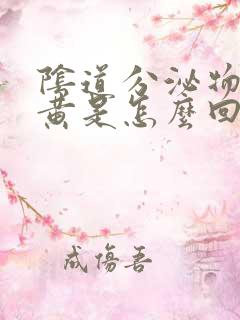 陰道分泌物
黃是怎麼回
成傷吾